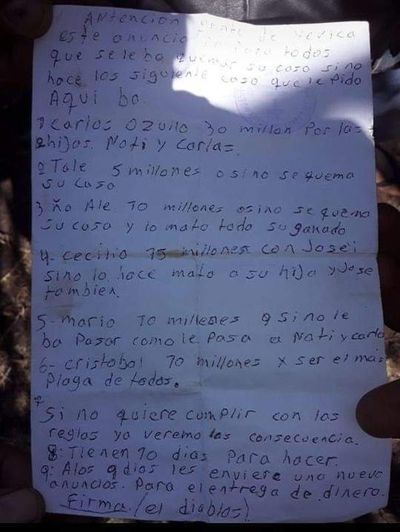 Antencion
este anuncio para todos
que se le ba quemar su casa sino
hace los siguiente cosa que le pido
Aqui ba.
1 Carlos Ozuilo 30 millon Por las
2 hijas. Noti y Carlas.
2 Tale 5 millones o sino se quema
su casa
3. Ño Ale 10 millones osino se quema
su casa y lo mato todo su ganado
4- cecilio 15 millones con Jose;
sino lo hace mato a su hija y Jose
tambien.
5- mario 10 millones q si no le
ba Pasar como le Pasa a Noti y carla
6- cristobal 10 millones x ser el mas
Plaga de todos.
7
Si no quiere cumplir con los
reglos ya veremo las consecuencia.
8: Tienen 10 dias Para hacer.
9: Alos 9 dias les enviere uno nuevo
anuncios. Para el entrega de dinero.
Firma: (el diablos)